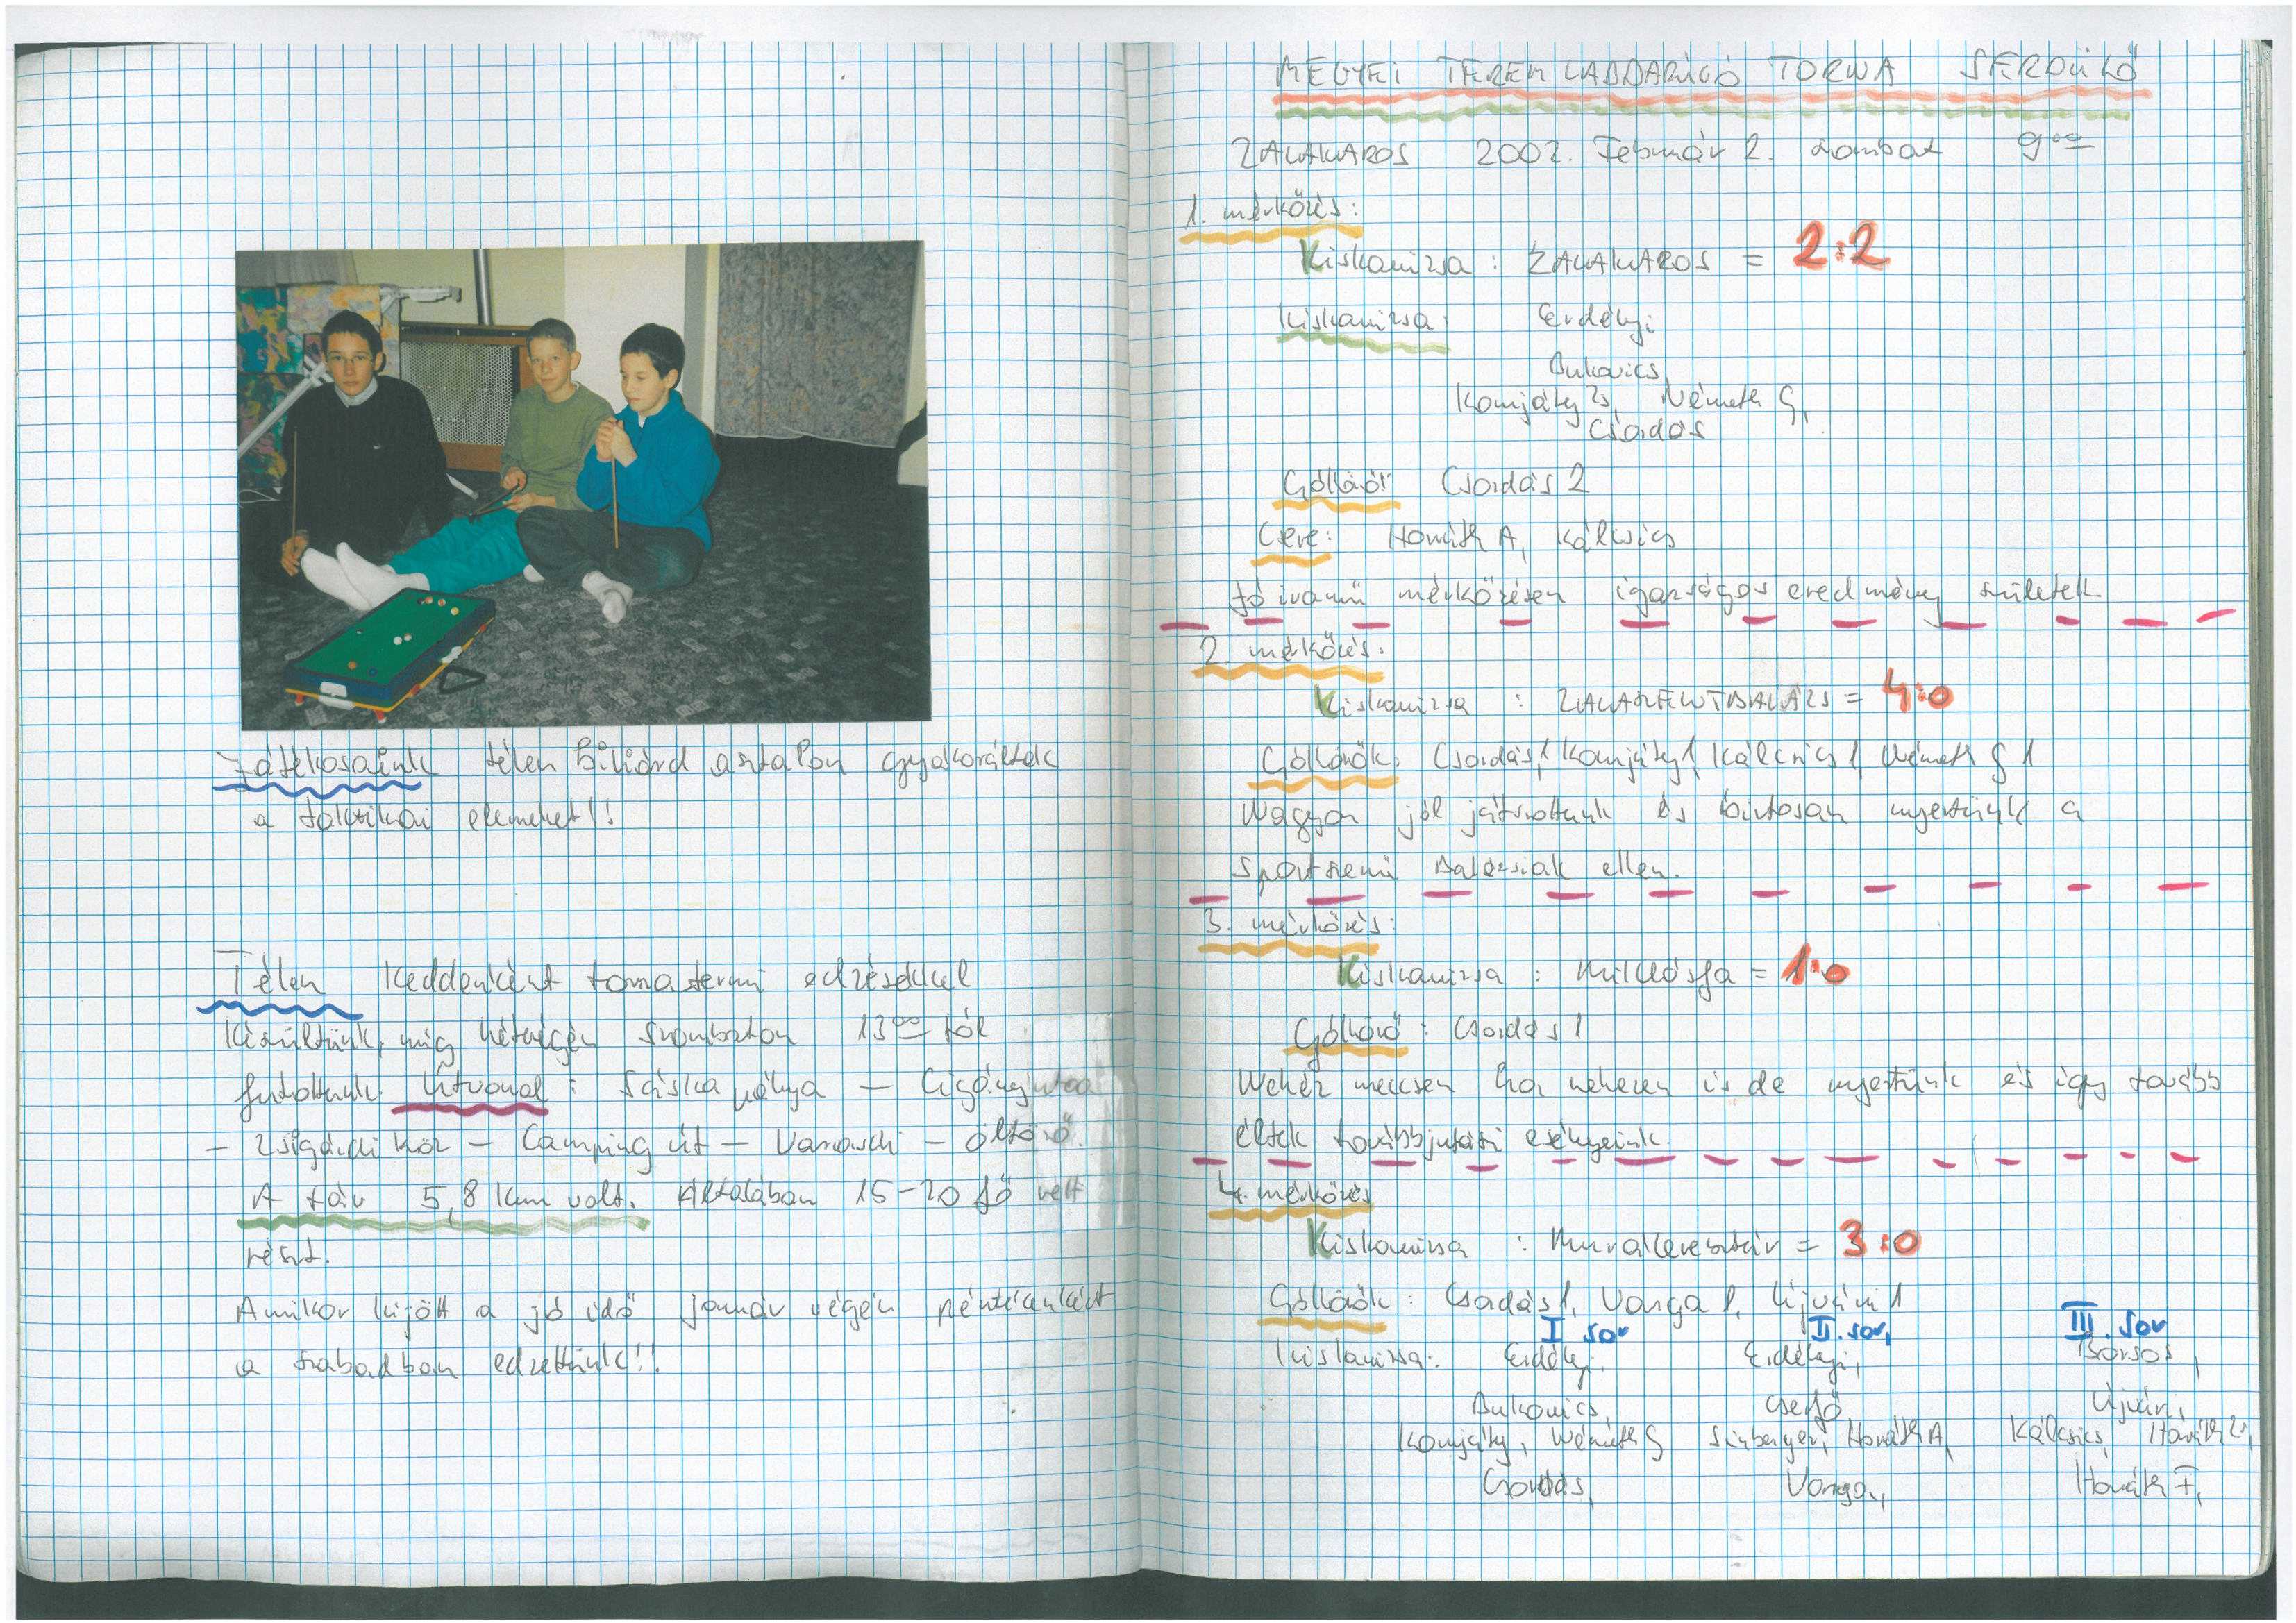 Játékosaink télen biliárd asztalon gyakorálták
a taktikai elemeket!!
Télen keddenként tornatermi edzésekkel
készültünk, míg hétvégén szombaton 13⁰⁰-tól
futottunk. Útvonal: Sáska pálya – Cigány utca
– Zsigárdi köz – Camping út – Varasdi – öltöző.
A táv 5,8 km volt. Általában 15-20 fő vett
részt.
Amikor kijött a jó idő január végén péntekenként
a szabadban edzettünk!!
MEGYEI TEREMLABDARÚGÓ TORNA SERDÜLŐ
ZALAKAROS 2002. Február 2. szombat 9⁰⁰
1. mérkőzés:
Kiskanizsa : ZALAKAROS = 2:2
Kiskanizsa: Erdélyi
Bukovics,
Komjáty Zs, Németh G,
Csordás
Góllövő: Csordás 2
Csere: Horváth A, Kálcsics
Jó iramú mérkőzésen igazságos eredmény születek.
2. mérkőzés:
Kiskanizsa : ZALASZENTBALÁZS = 4:0
Góllövők: Csordás 1, Komjáty 1, Kálcsics 1, Németh G 1
Nagyon jól játszottunk és biztosan nyertünk a
sportszerű Balázsiak ellen.
3. mérkőzés:
Kiskanizsa : Miklósfa = 1:0
Góllövő: Csordás 1
Nehéz meccsen ha nehezen is de nyertünk és így tovább
éltek továbbjutási esélyeink.
4. mérkőzés
Kiskanizsa : Murakeresztúr = 3:0
Góllövők: Csordás 1, Varga 1, Újvári 1
I sor II. sor, III. sor
Kiskanizsa: Erdélyi, Erdélyi, Borsos,
Bukovics, Cserfő, Újvári,
Komjáty, Németh G Sinberger, Horváth A, Kálcsics, Horváth Zs,
Csordás, Varga, Horváth F,